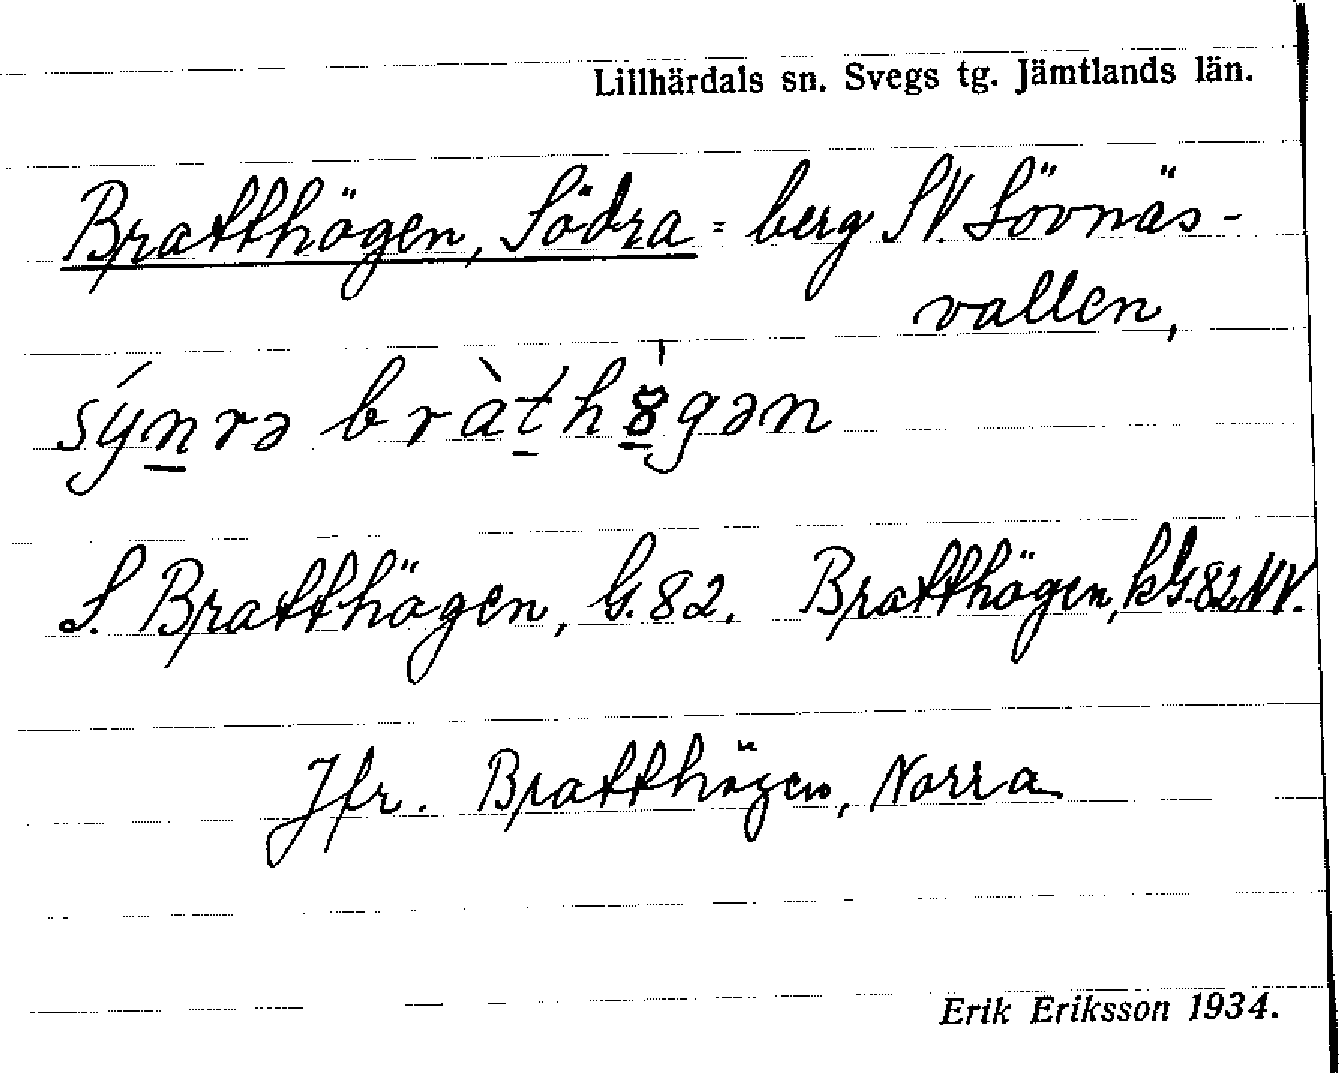 Lillhärdals sn. Svegs tg. Jämtlands län.
Bratthögen, Södra = berg SV. Lövnäs-
vallen,
sýnrə bràthȣgən
S. Bratthögen, G. 82. Bratthögen, kG. 82 NV.
Jfr. Bratthögen, Norra
Erik Eriksson 1934.